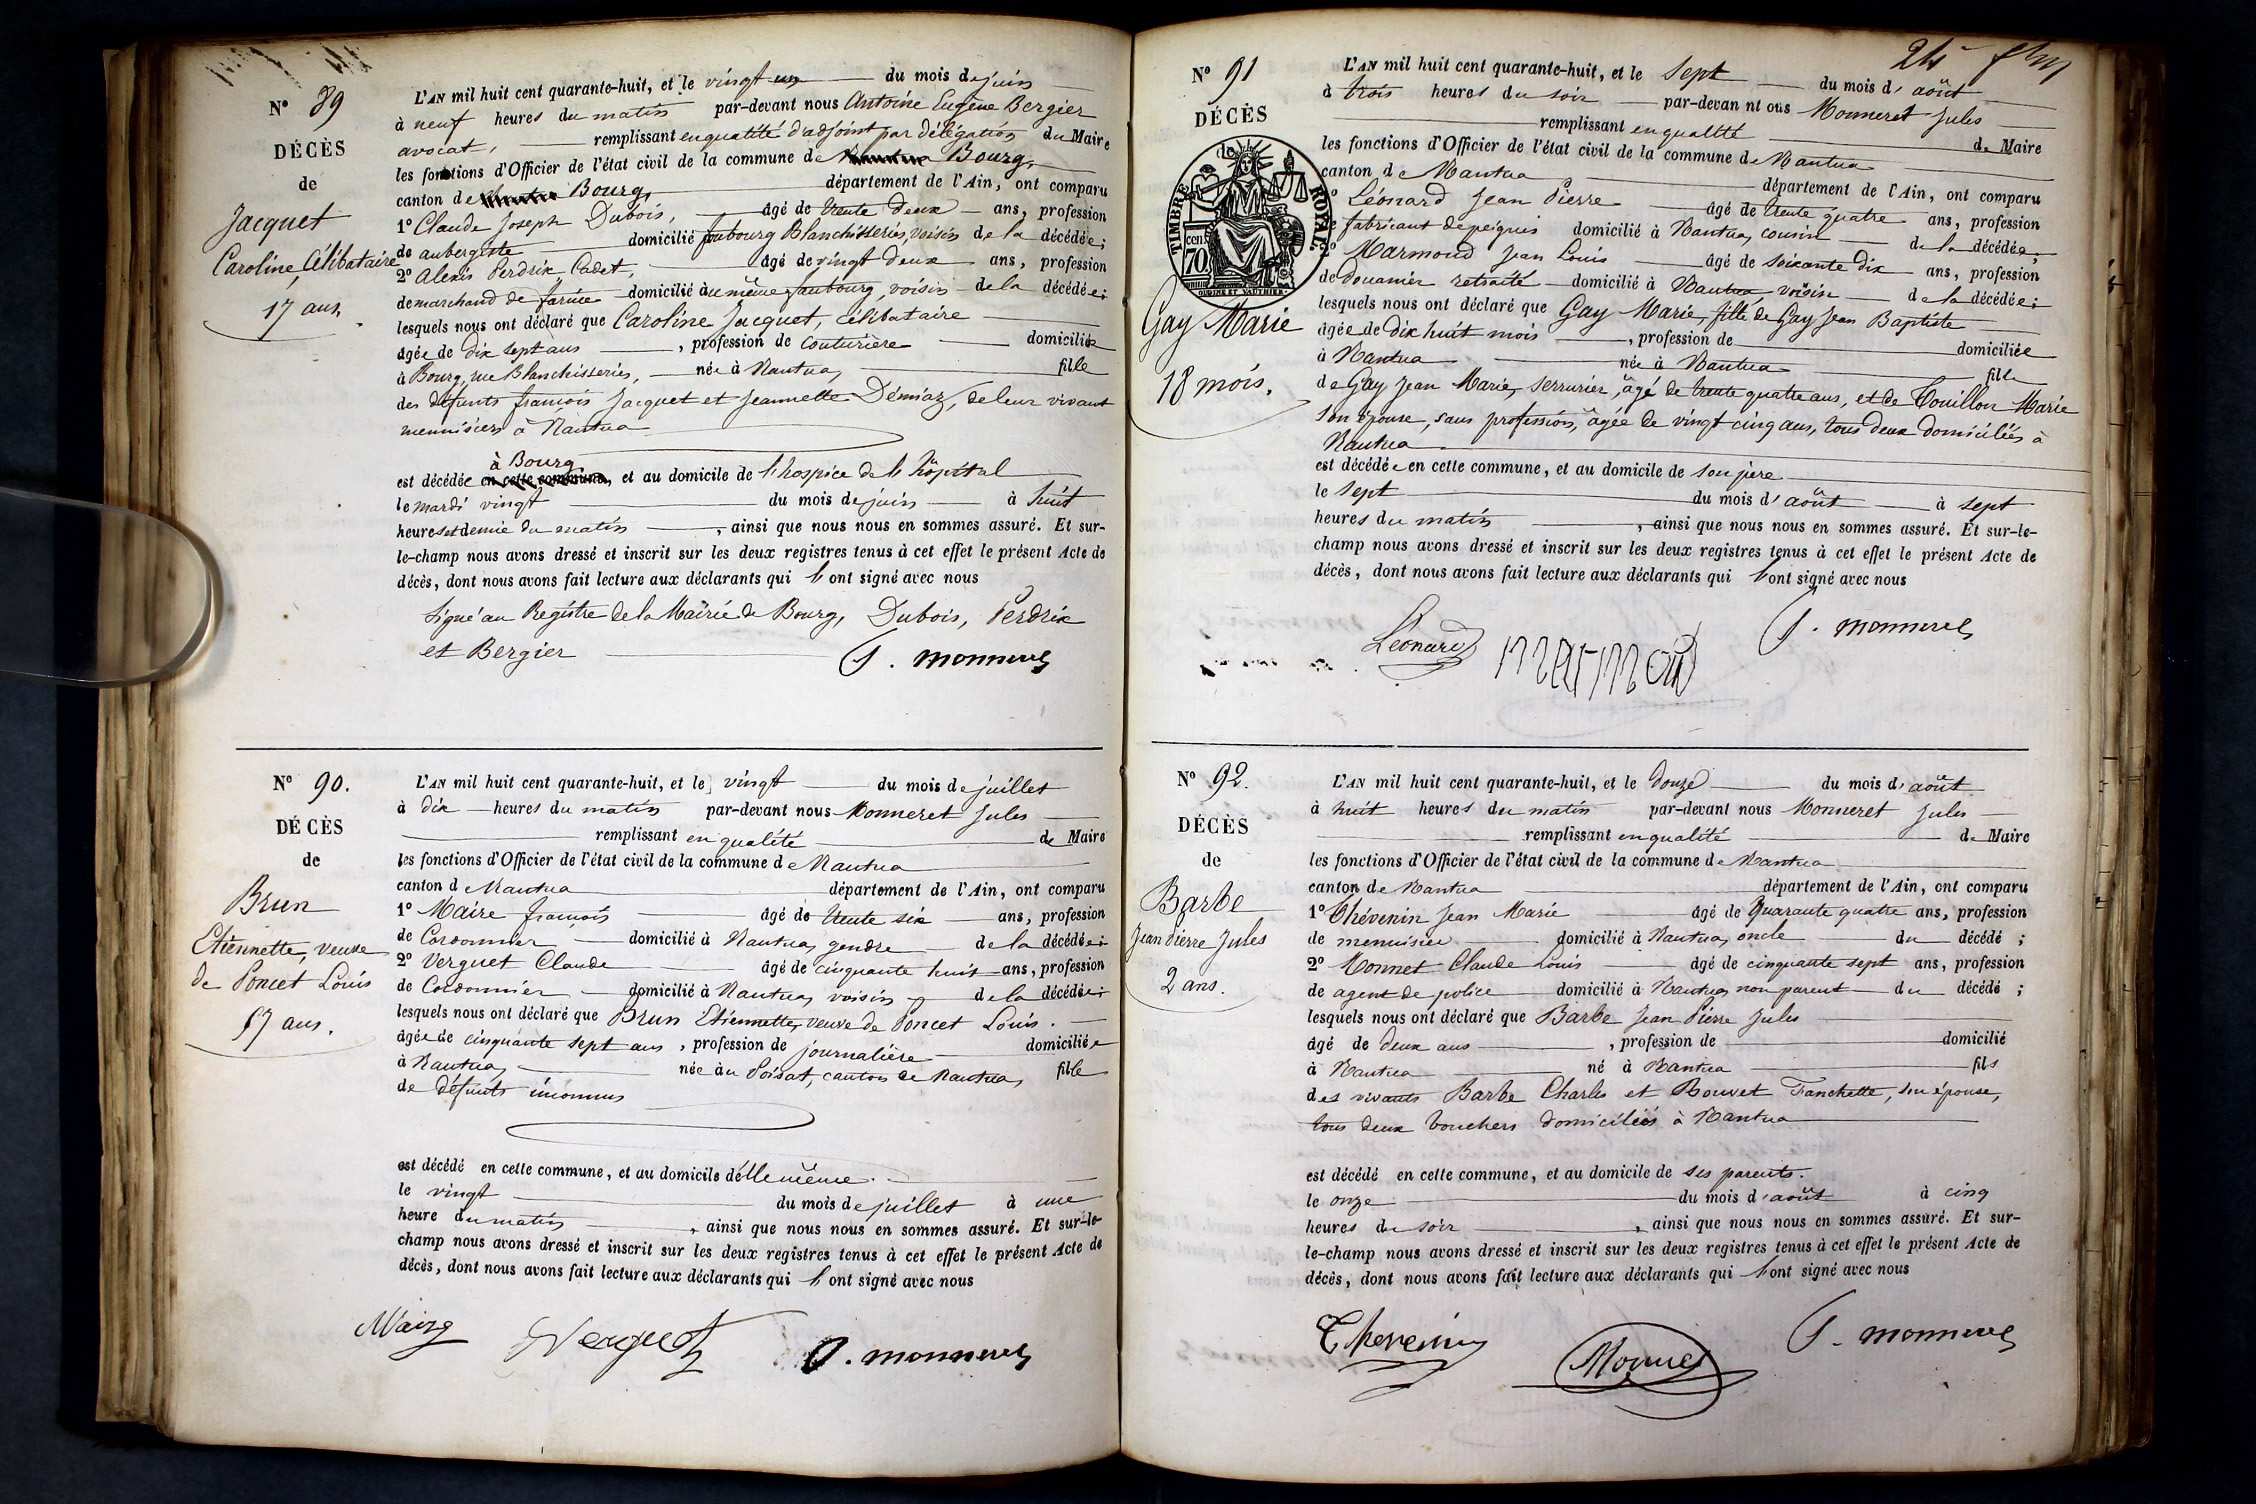 N° 89
DÉCÈS
de
Jacquet
Caroline, Célibataire
17 ans
L'AN mil huit cent quarante-huit, et le vingt un du mois de juin
à neuf heures du matin par-devant nous Antoine Eugène Bergier
avocat, remplissant en qualité d'adjoint par délégation du Maire
les fonctions d'Officier de l'état civil de la commune de Bourg,
canton de Bourg, département de l'Ain, ont comparu
1° Claude Joseph Dubois, âgé de trente deux ans, profession
de aubergiste domicilié faubourg Blanchisseries, voisin de la décédée;
2° Alexis Perdrix Cadet, âgé de vingt deux ans, profession
de marchand de farine domicilié au même faubourg, voisin de la décédée;
lesquels nous ont déclaré que Caroline Jacquet, célibataire
âgée de dix sept ans, profession de couturière domiciliée
à Bourg, rue Blanchisseries, née à Nantua, fille
des défunts françois Jacquet et Jeannette Démiaz, de leur vivant
menuisiers à Nantua
à Bourg
est décédée en cette commune, et au domicile de l'hospice de l'hôpital
le mardi vingt du mois de juin à huit
heures et demie du matin, ainsi que nous nous en sommes assuré. Et sur-
le-champ nous avons dressé et inscrit sur les deux registres tenus à cet effet le présent Acte de
décès, dont nous avons fait lecture aux déclarants qui l'ont signé avec nous
Signé au Registre de la Mairie de Bourg, Dubois, Perdrix
et Bergier J. Monneret
N° 90.
DÉCÈS
de
Brun
Etiennette, veuve
de Poncet Louis
57 ans.
L'AN mil huit cent quarante-huit, et le vingt du mois de juillet
à dix heures du matin par-devant nous Monneret Jules
remplissant en qualité de Maire
les fonctions d'Officier de l'état civil de la commune de Nantua
canton de Nantua département de l'Ain, ont comparu
1° Maire françois âgé de trente six ans, profession
de Cordonnier domicilié à Nantua, gendre de la décédée;
2° Verguet Claude âgé de cinquante huit ans, profession
de Cordonnier domicilié à Nantua, voisin de la décédée;
lesquels nous ont déclaré que Brun Etiennette, veuve de Poncet Louis.
âgée de cinquante sept ans, profession de journalière domiciliée
à Nantua, née au Poizat, canton de Nantua, fille
de défunts inconnus
est décédé en cette commune, et au domicile d'elle même.
le vingt du mois de juillet à une
heure du matin, ainsi que nous nous en sommes assuré. Et sur-le-
champ nous avons dressé et inscrit sur les deux registres tenus à cet effet le présent Acte de
décès, dont nous avons fait lecture aux déclarants qui l'ont signé avec nous
Maire Verguet J. Monneret
24
N° 91
DÉCÈS
de
TIMBRE ROYAL
70 cen
OUDINÉ ET VAUTHIER
Gay Marie
18 mois.
L'AN mil huit cent quarante-huit, et le Sept du mois d'août
à trois heures du soir par-devan nt ous Monneret Jules
remplissant en qualité de Maire
les fonctions d'Officier de l'état civil de la commune de Nantua
canton de Nantua département de l'Ain, ont comparu
Léonard Jean Pierre âgé de trente quatre ans, profession
fabricant de peignes domicilié à Nantua, cousin de la décédée;
Marmoud Jean Louis âgé de soixante dix ans, profession
de Douanier retraité domicilié à Nantua, voisin de la décédée;
lesquels nous ont déclaré que Gay Marie, fille de Gay Jean Baptiste
âgée de dix huit mois, profession de domiciliée
à Nantua née à Nantua fille
de Gay Jean Marie, serrurier, âgé de trente quatre ans, et de Touillon Marie
son épouse, sans profession, âgée de vingt cinq ans, tous deux domiciliés à
Nantua
est décédée en cette commune, et au domicile de son père
le Sept du mois d'août à sept
heures du matin, ainsi que nous nous en sommes assuré. Et sur-le-
champ nous avons dressé et inscrit sur les deux registres tenus à cet effet le présent Acte de
décès, dont nous avons fait lecture aux déclarants qui l'ont signé avec nous
Léonard marmoud J. Monneret
N° 92.
DÉCÈS
de
Barbe
Jean Pierre Jules
2 ans.
L'AN mil huit cent quarante-huit, et le douze du mois d'août
à huit heures du matin par-devant nous Monneret Jules
remplissant en qualité de Maire
les fonctions d'Officier de l'état civil de la commune de Nantua
canton de Nantua département de l'Ain, ont comparu
1° Thévenin Jean Marie âgé de quarante quatre ans, profession
de menuisier domicilié à Nantua, oncle du décédé;
2° Monnet Claude Louis âgé de cinquante sept ans, profession
de agent de police domicilié à Nantua, non parent du décédé;
lesquels nous ont déclaré que Barbe Jean Pierre Jules
âgé de deux ans, profession de domicilié
à Nantua né à Nantua fils
des vivants Barbe Charles et Bouvet Fanchette, son épouse,
tous deux bouchers domiciliés à Nantua
est décédé en cette commune, et au domicile de ses parents.
le onze du mois d'août à cinq
heures du soir, ainsi que nous nous en sommes assuré. Et sur-
le-champ nous avons dressé et inscrit sur les deux registres tenus à cet effet le présent Acte de
décès, dont nous avons fait lecture aux déclarants qui l'ont signé avec nous
Thevenin Monnet J. Monneret